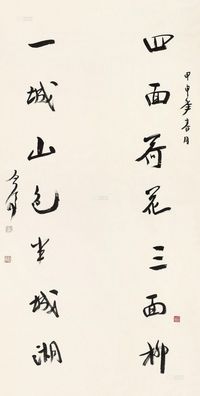 四面荷花三面柳
甲申年春月
一城山色半城湖